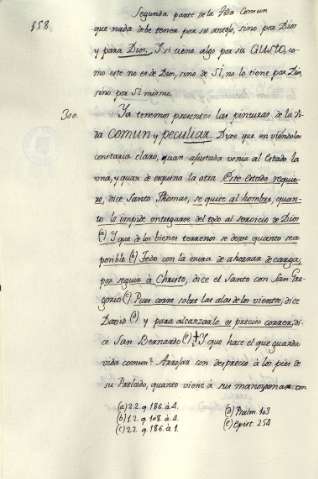 Segunda parte de la Vida Comun
358.
que nada debe tener por su antojo, sino por Dios
y para Dios. Y si tiene algo por su GUSTO, co-
mo este no es de Dios, sino de SÍ, no lo tiene por Dios,
sino por Sí mismo.
300. Ya tenemos presentes las pinturas de la Vi-
da COMUN y peculiar. Dixe que en viéndolas
constaria claro, quan ajustada venia al Estado la
una, y quan de esquina la otra. Este estado requie-
re, dice Santo Thomas, se quite al hombre, quan-
to le impide entregarse del todo al servicio de Dios
(a) Y que de los bienes terrenos se dexe quanto sea
posible (b) Todo con la mira de ahorrar de carga,
por seguir à Christo, dice el Santo con San Gre-
gorio (c) Pues corre sobre las alas de los vientos, dice
David (d) y para alcanzarle es preciso correr, di-
ce San Bernardo (e) Y que hace el que guarda
vida comun? Arrojar con desprecio à los pies de
su Prelado, quanto viene à sus manos, para con
(a) 2.2. q. 186. à. 4.
(b) 1.2. q. 108. à. 4.
(c) 2.2. q. 186. à. 1.
(d) Psalm. 103
(e) epist. 254